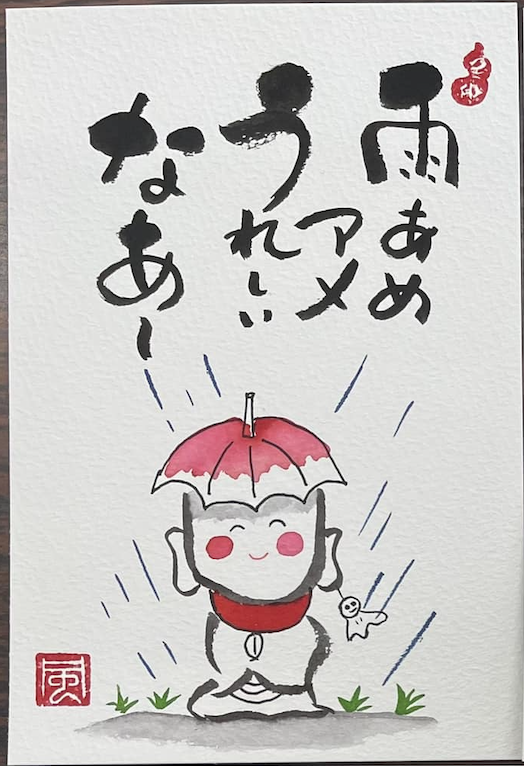 雨あめ
アメ
うれしい
なあー
風